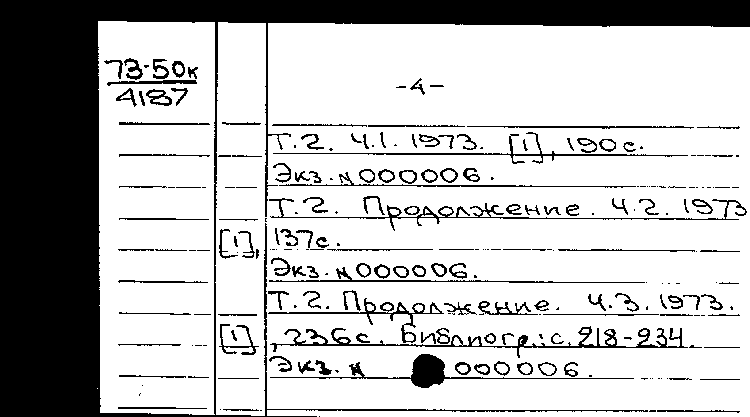 73-50к
4187
-4-
Т.2. Ч.1. 1973. [1], 190с.
Экз. №000006.
Т.2. Продолжение. Ч.2. 1973
[1], 137с.
Экз. №000006.
Т.2. Продолжение. Ч.3. 1973.
[1], 236с. Библиогр.: с. 218-234.
Экз. № 000006.